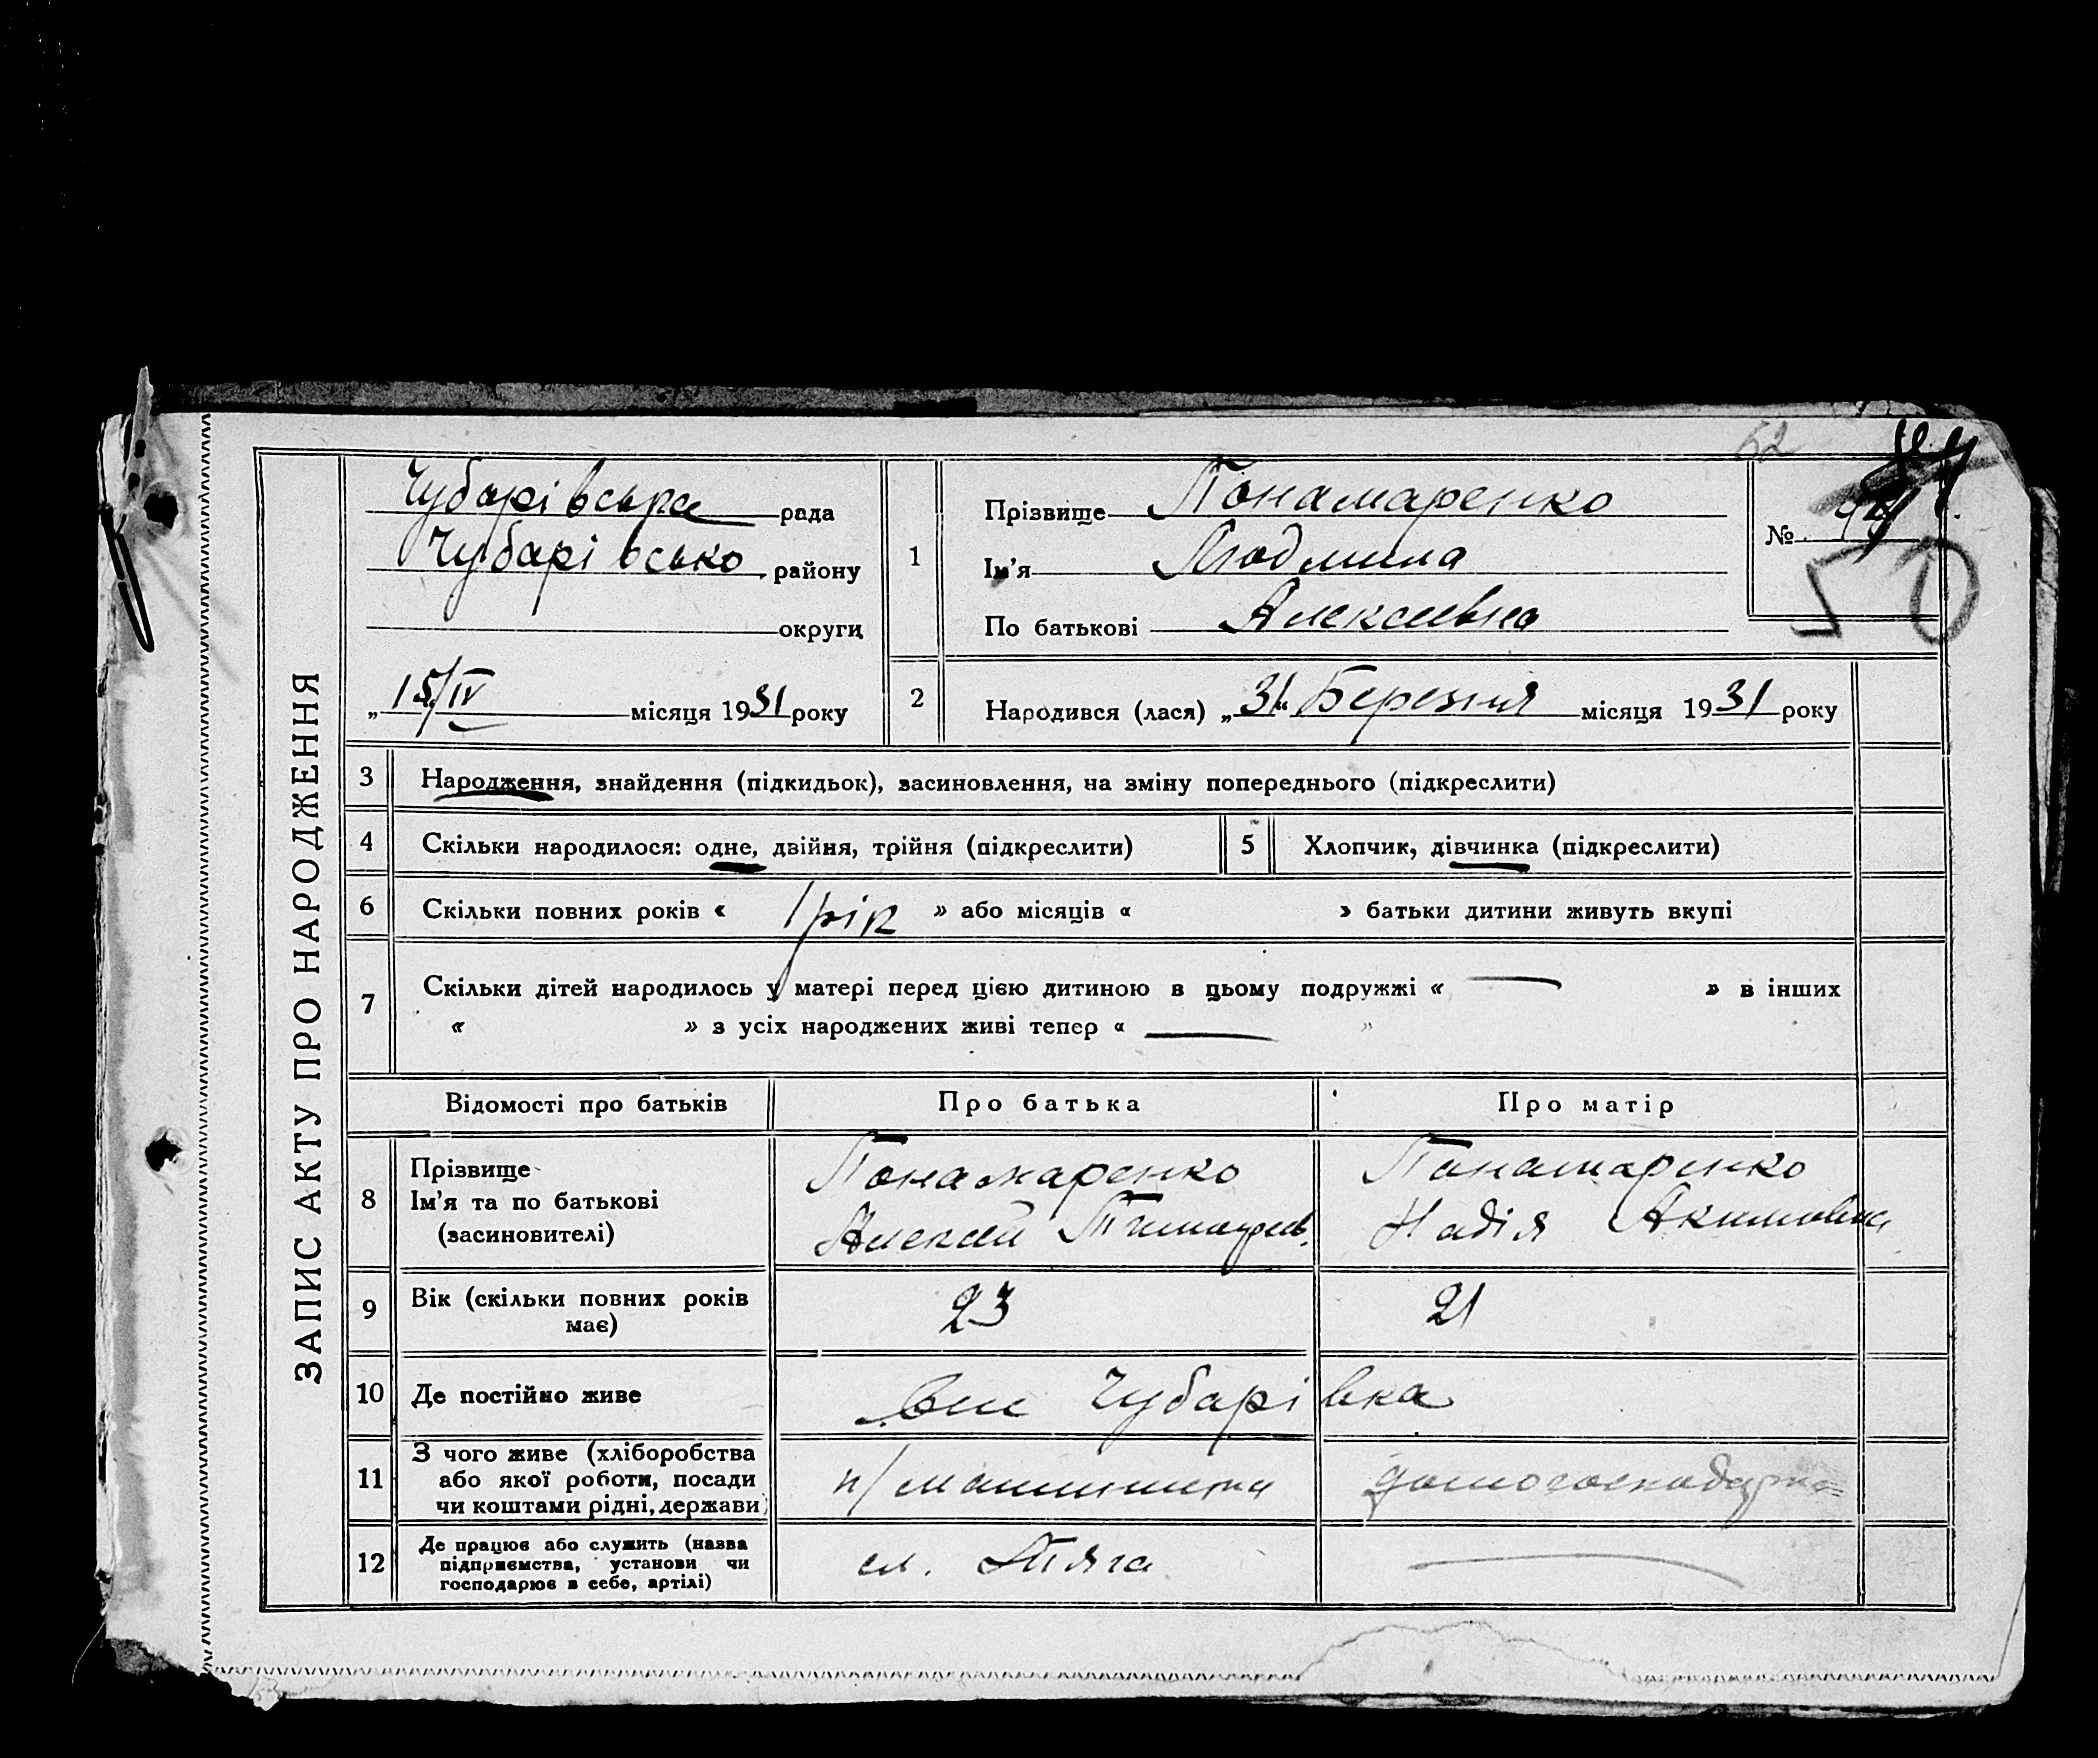 ЗАПИС АКТУ ПРО НАРОДЖЕННЯ
62
Чубарівська рада
Чубарівсько району
округи
„15/IV місяця 1931 року
1
Прізвище Понамаренко
Ім'я Людмила
По батькові Алексеевна
№
50
2
Народився (лася) „31“ Березня місяця 1931 року
3 Народження, знайдення (підкидьок), засиновлення, на зміну попереднього (підкреслити)
4 Скільки народилося: одне, двійня, трійня (підкреслити) 5 Хлопчик, дівчинка (підкреслити)
6 Скільки повних років « 1 рік » або місяців « » батьки дитини живуть вкупі
7 Скільки дітей народилось у матері перед цією дитиною в цьому подружжі « — » в інших
« » з усіх народжених живі тепер « — »
Відомості про батьків Про батька Про матір
8 Прізвище Понамаренко Понамаренко
Ім'я та по батькові Алексей Надія Акимовна
(засиновителі)
9 Вік (скільки повних років 23 21
має)
10 Де постійно живе Чубарівка
11 З чого живе (хліборобства
або якої роботи, посади п/машиниста домогосподарка
чи коштами рідні, держави)
12 Де працює або служить (назва
підприємства, установи чи сл. Тяга —
господарює в себе, артілі)